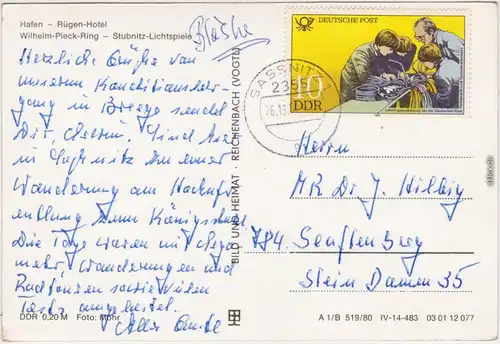 Hafen – Rügen-Hotel
Wilhelm-Pieck-Ring – Stubnitz-Lichtspiele
Herzliche Grüße von
unserem Konditionslehr-
gang in Breege sendet
Dir,
in Saßnitz zu einer
Wanderung am Hochufer
entlang zum Königsstuhl.
Die Tage waren mit
mehr Wanderungen und
Radtouren sowie vielen
Tests ausgelastet.
Alles Gute
DDR 0,20 M Foto: Mohr
BILD UND HEIMAT · REICHENBACH (VOGTL)
DEUTSCHE POST
10
DDR
SASSNITZ
2355
Herrn
MR Dr. J. Hilbig
784 Senftenberg
Stein Damm 35
A 1/B 519/80 IV-14-483 03 01 12 077